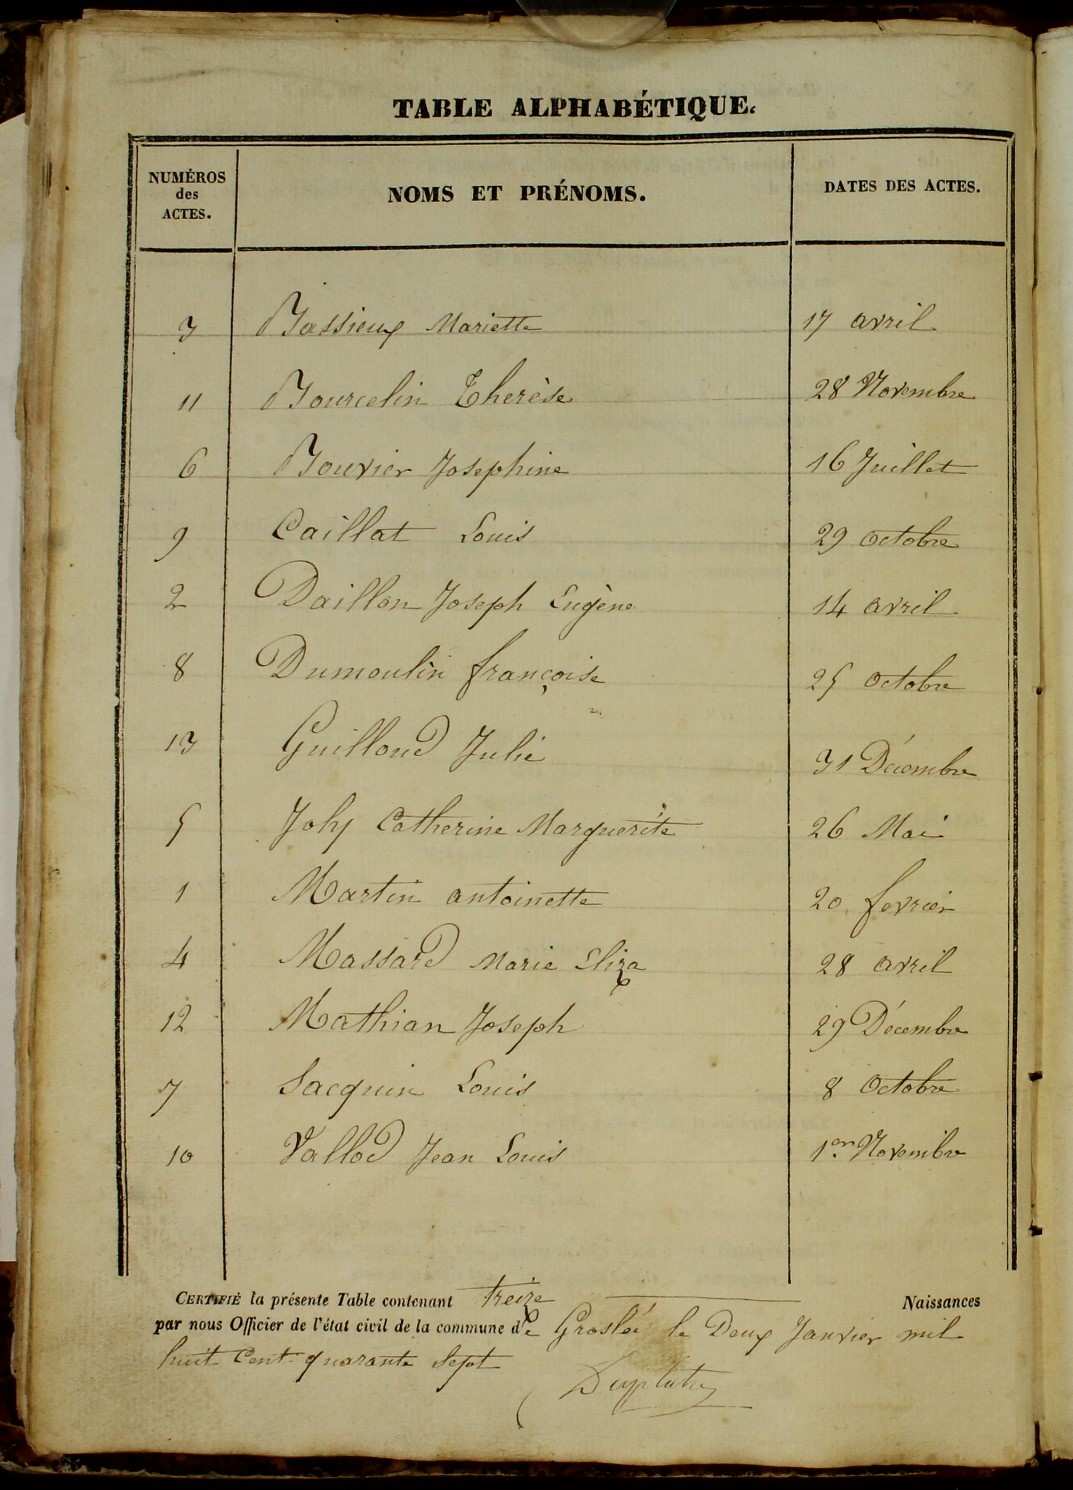 TABLE ALPHABÉTIQUE.
NUMÉROS des ACTES. NOMS ET PRÉNOMS. DATES DES ACTES.
3 Bassieux Mariette 17 avril
11 Bourcelin Therèse 28 Novembre
6 Bouvier Josephine 16 Juillet
9 Caillat Louis 29 octobre
2 Daillon Joseph Eugène 14 avril
8 Dumoulin françoise 25 octobre
13 Guilloud Julie 31 Décembre
5 Joly Catherine Marguerite 26 Mai
1 Martin antoinette 20 fevrier
4 Massard Marie Eliza 28 avril
12 Mathian Joseph 29 Décembre
7 Sacquin Louis 8 Octobre
10 Vallod Jean Louis 1er Novembre
CERTIFIÉ la présente Table contenant treize Naissances
par nous Officier de l'état civil de la commune de Groslée le Deux Janvier mil
huit Cent quarante Sept